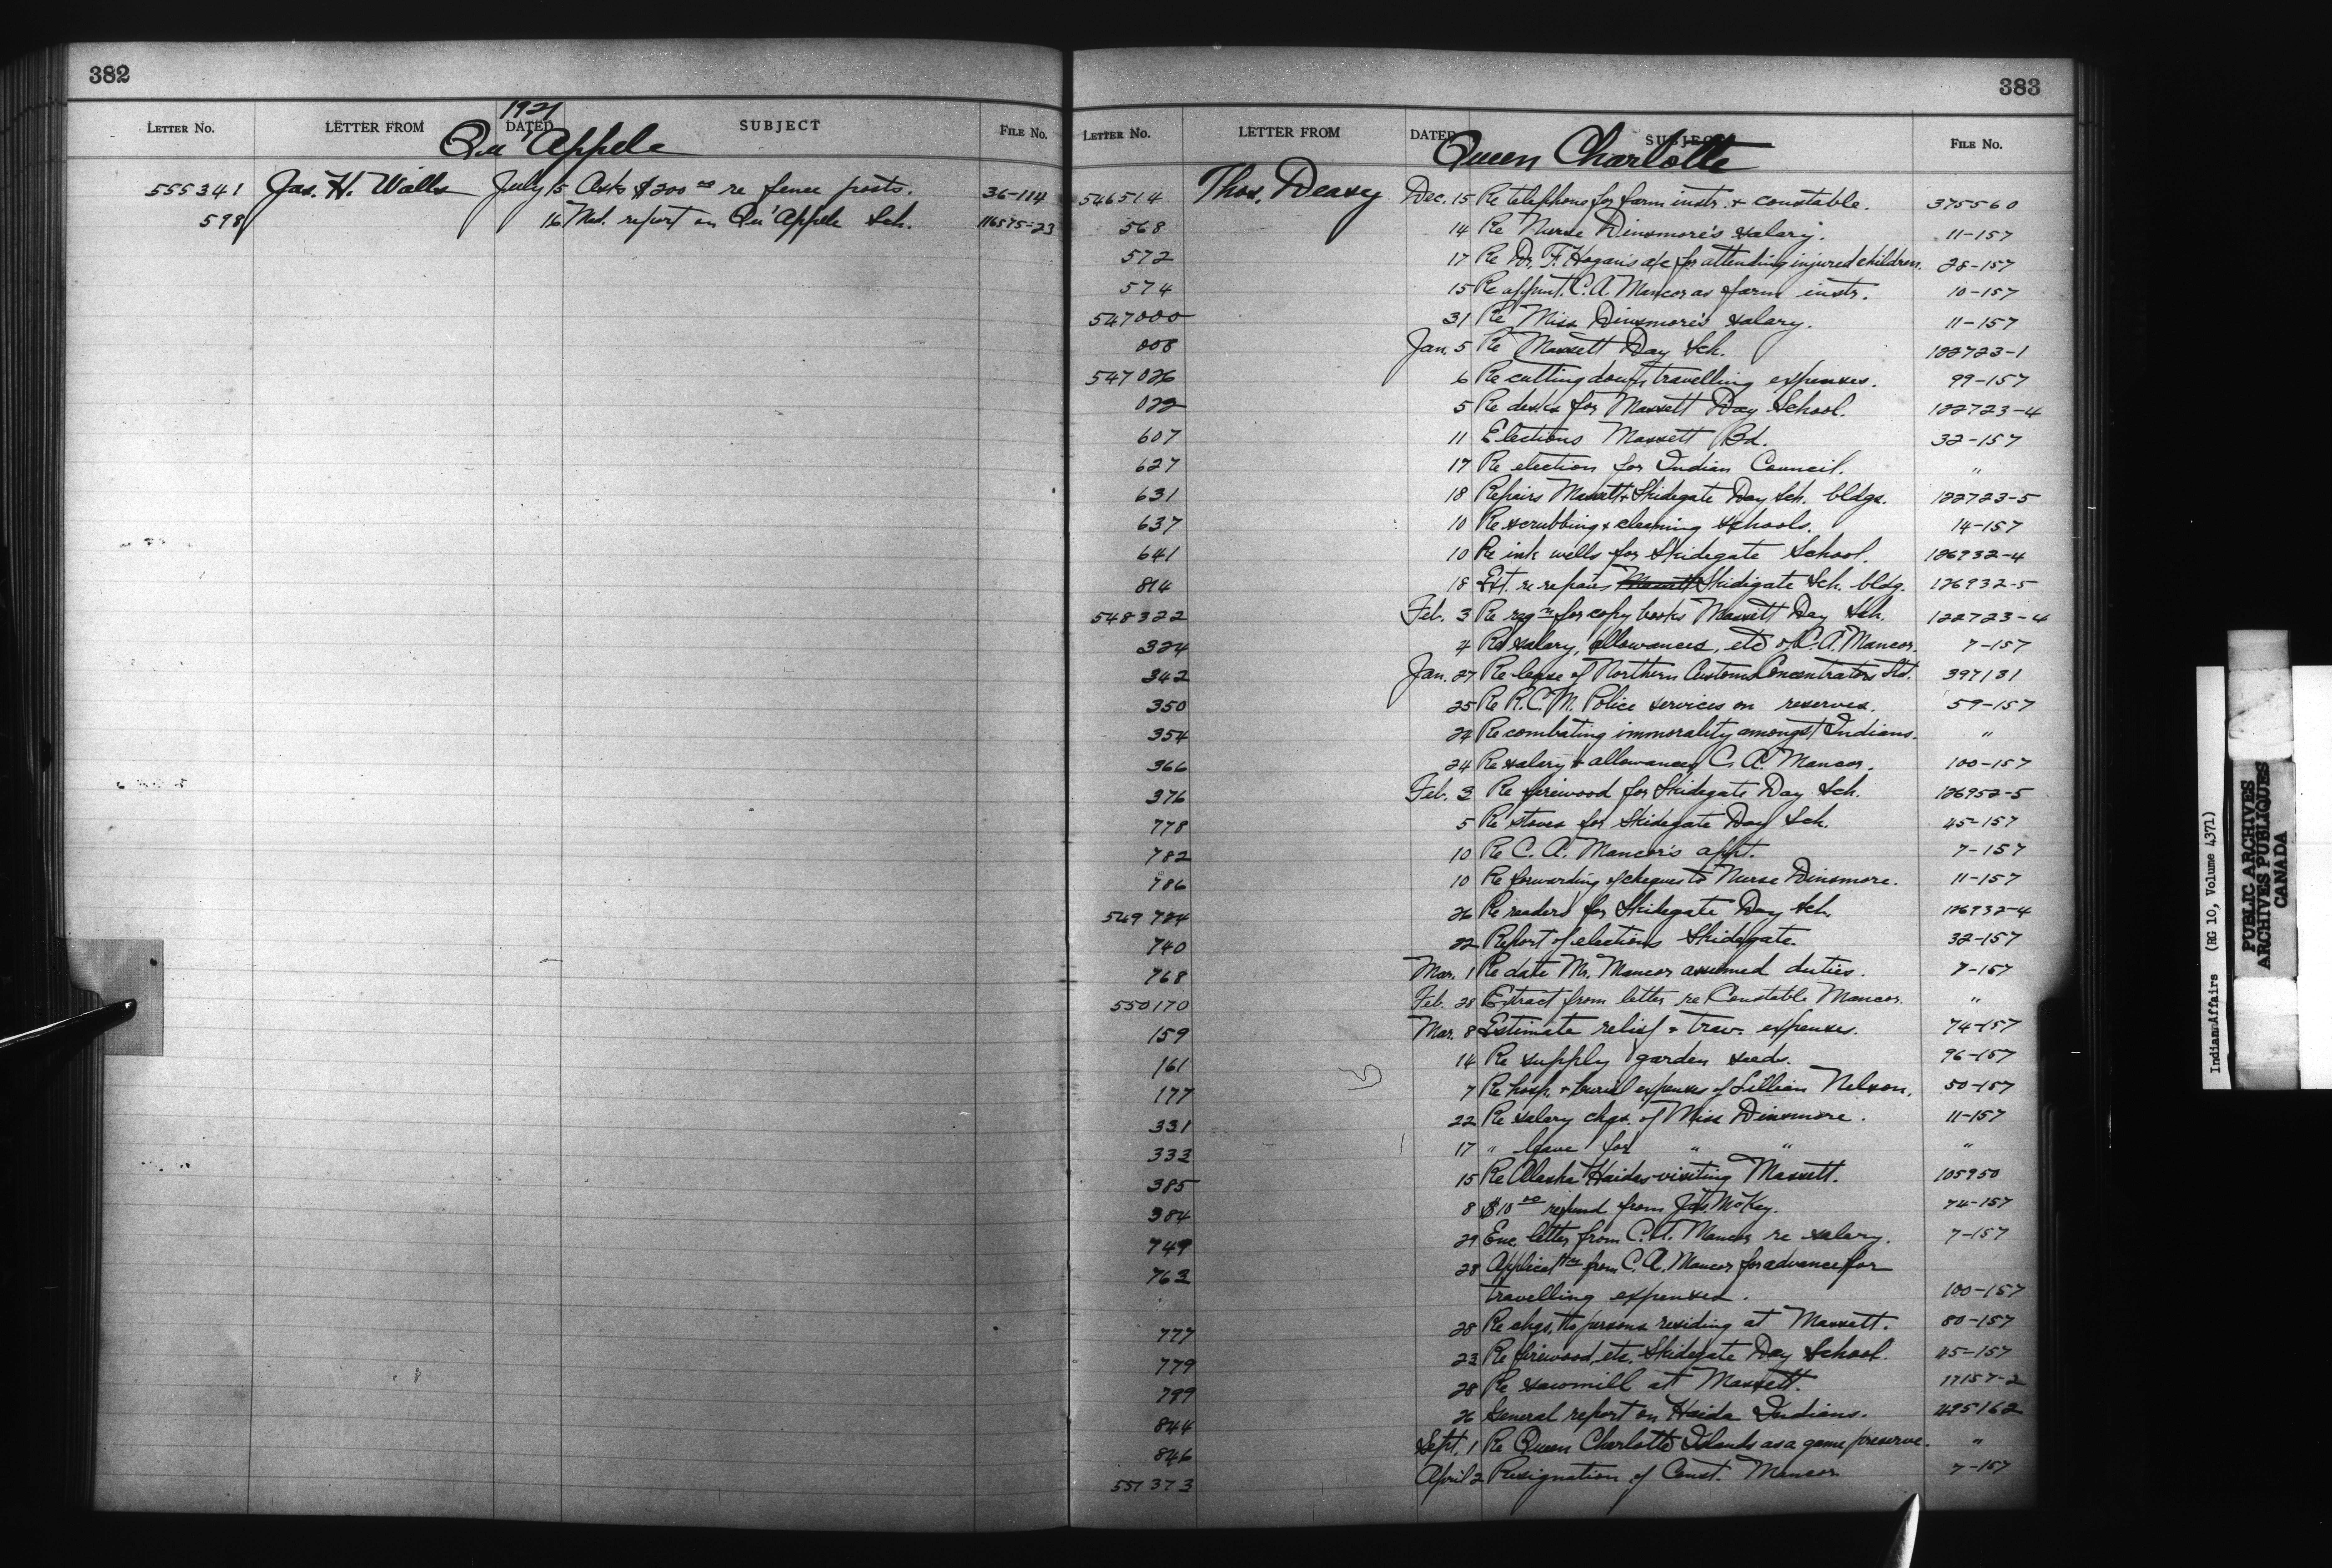 382
LETTER NO. LETTER FROM DATED SUBJECT FILE NO.
1921
Qu'Appele
555341 Jas. H. Walls July 15 Asks $200 00 re fence posts. 36-114
598 16 Med. report on Qu'Appele Sch. 116575-23
383
LETTER NO. LETTER FROM DATED SUBJECT FILE NO.
Queen Charlotte
546514 Thos. Deasy Dec. 15 Re telephone for farm instr. + constable. 375560
568 14 Re Nurse Dinsmore's salary. 11-157
572 17 Re Dr. F. Hogan's a/c for attending injured children. 28-157
574 15 Re appmt. C. A. Mancor as farm instr. 10-157
547000 31 Re Miss Dinsmore's salary. 11-157
008 Jan. 5 Re Massett Day Sch. 122723-1
547026 6 Re cutting down travelling expenses. 99-157
022 5 Re desks for Massett Day School. 122723-4
607 11 Elections Massett Bd. 32-157
627 17 Re election for Indian Council. "
631 18 Repairs Massett + Skidegate Day Sch. bldgs. 122723-5
637 10 Re scrubbing + cleaning schools. 14-157
641 10 Re ink wells for Skidegate School. 126932-4
814 18 Ext. re repairs Massett Skidigate Sch. bldg. 126932-5
548322 Feb. 3 Re reqn for copy books Massett Day Sch. 122723-4
324 4 Re salary, allowances, etc of C. A. Mancor. 7-157
342 Jan. 27 Re lease of Northern Customs Concentrators Ltd. 397131
350 25 Re R.C.M. Police services on reserves. 59-157
354 24 Re combating immorality amongst Indians. "
366 24 Re salary + allowances C. A. Mancor. 100-157
376 Feb. 3 Re firewood for Skidegate Day Sch. 126952-5
778 5 Re stoves for Skidegate Day Sch. 45-157
782 10 Re C. A. Mancor's appt. 7-157
786 10 Re forwarding of cheques to Nurse Dinsmore. 11-157
549724 26 Re readers for Skidegate Day Sch. 126932-4
740 22 Report of elections Skidegate. 32-157
768 Mar. 1 Re date Mr. Mancor assumed duties. 7-157
550170 Feb. 28 Extract from letter re Constable Mancor. "
159 Mar. 8 Estimate relief + trav. expenses. 74-157
161 14 Re supply garden seeds. 96-157
177 7 Re hosp. + burial expenses of Lillian Nelson. 50-157
331 22 Re salary chqs. of Miss Dinsmore. 11-157
333 17 " leave for " " "
385 15 Re Alaska Haidas visiting Massett. 105950
384 8 $10 00 refund from Jas. McKay. 74-157
749 29 Enc. letter from C. A. Mancor re salary. 7-157
763 28 Applicatn from C. A. Mancor for advance for
travelling expenses. 100-157
777 28 Re chgs. to persons residing at Massett. 80-157
779 23 Re firewood, etc. Skidegate Day School. 45-157
799 28 Re sawmill at Massett. 17157-2
844 26 General report on Haida Indians. 495162
846 Sept. 1 Re Queen Charlotte Islands as a game preserve. "
551373 April 2 Resignation of Const. Mancor. 7-157
Indian Affairs (RG 10, Volume 4371)
PUBLIC ARCHIVES
ARCHIVES PUBLIQUES
CANADA